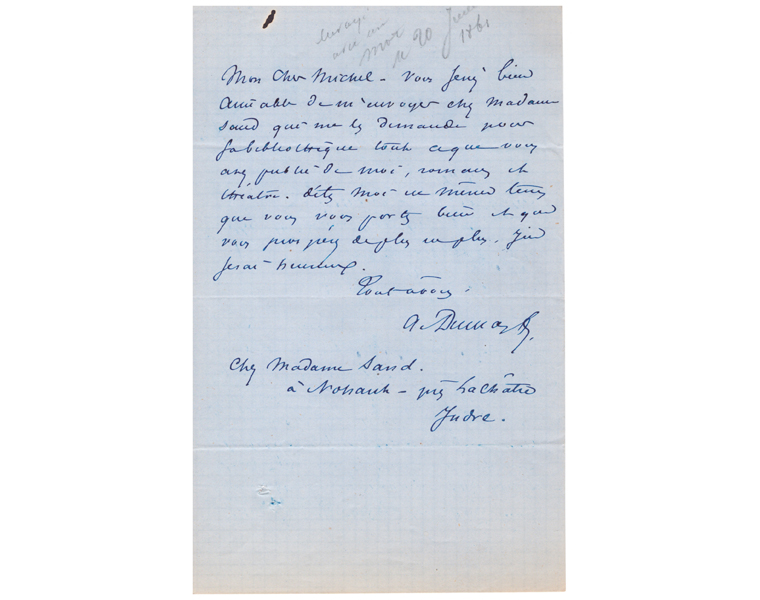 Envoyé
avec un
mot
le 20 Juin
1861
Mon cher Michel – Vous serez bien
aimable de m'envoyer chez Madame
Sand qui me les demande pour
sa bibliothèque tout ce que vous
avez publié de moi, romans et
théâtre. Dites moi en même temps
que vous vous portez bien et que
vous prospérez de plus en plus. J'en
serai heureux.
Tout à vous.
A. Dumas f.
Chez Madame Sand.
à Nohant – près La Châtre
Indre.